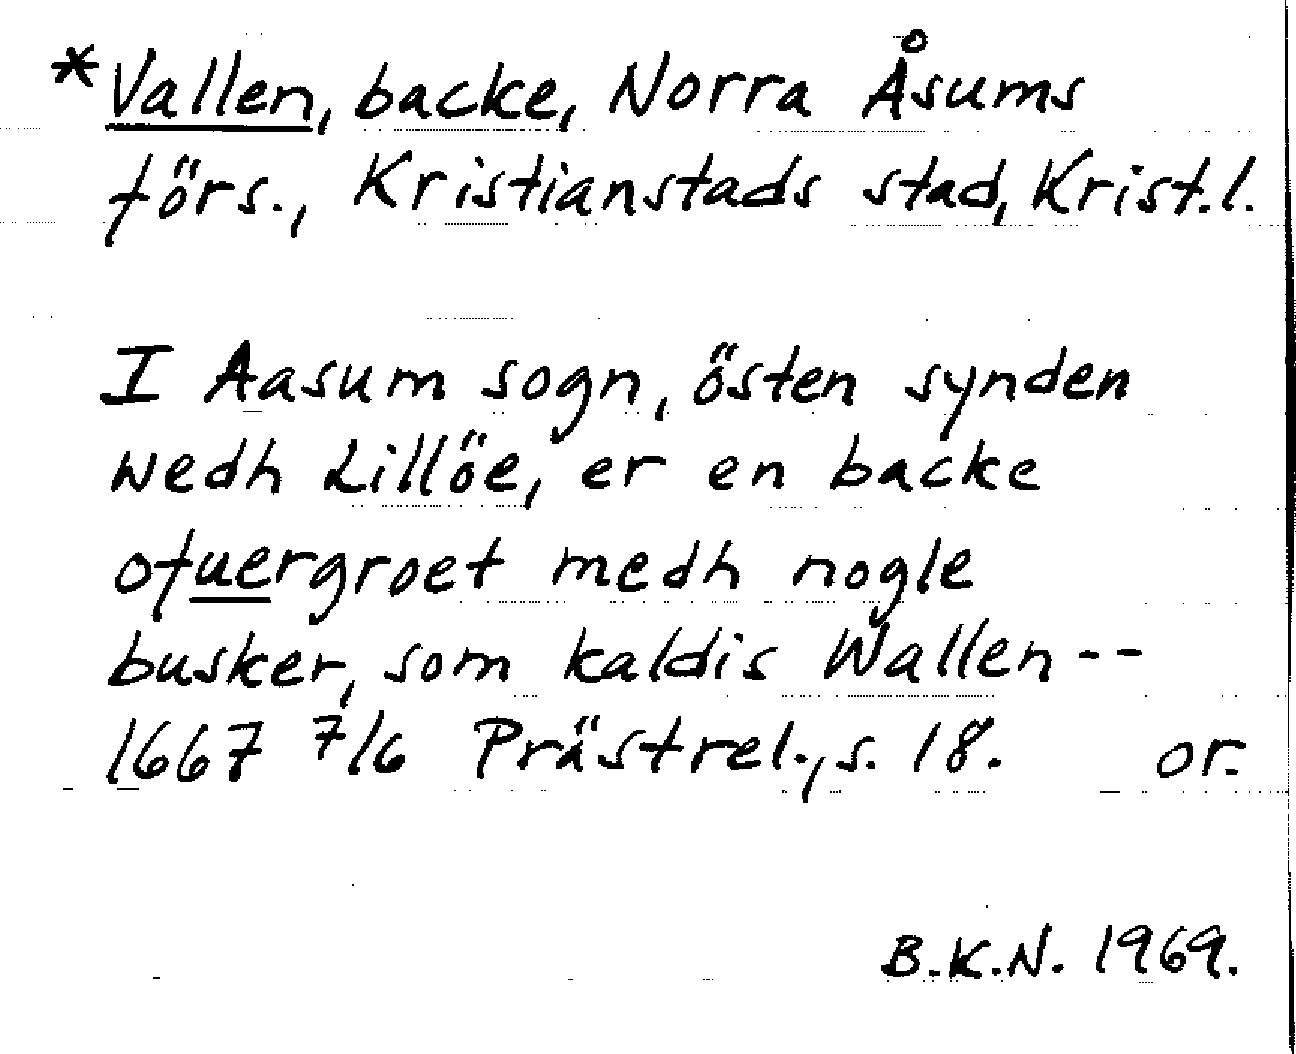 *Vallen, backe, Norra Åsums
förs., Kristianstads stad, Krist.l.
I Aasum sogn, östen synden
wedh Lillöe, er en backe
ofuergroet medh nogle
busker, som kaldis Wallen --
1667 7/6 Prästrel., s. 18. or.
B.K.N. 1969.